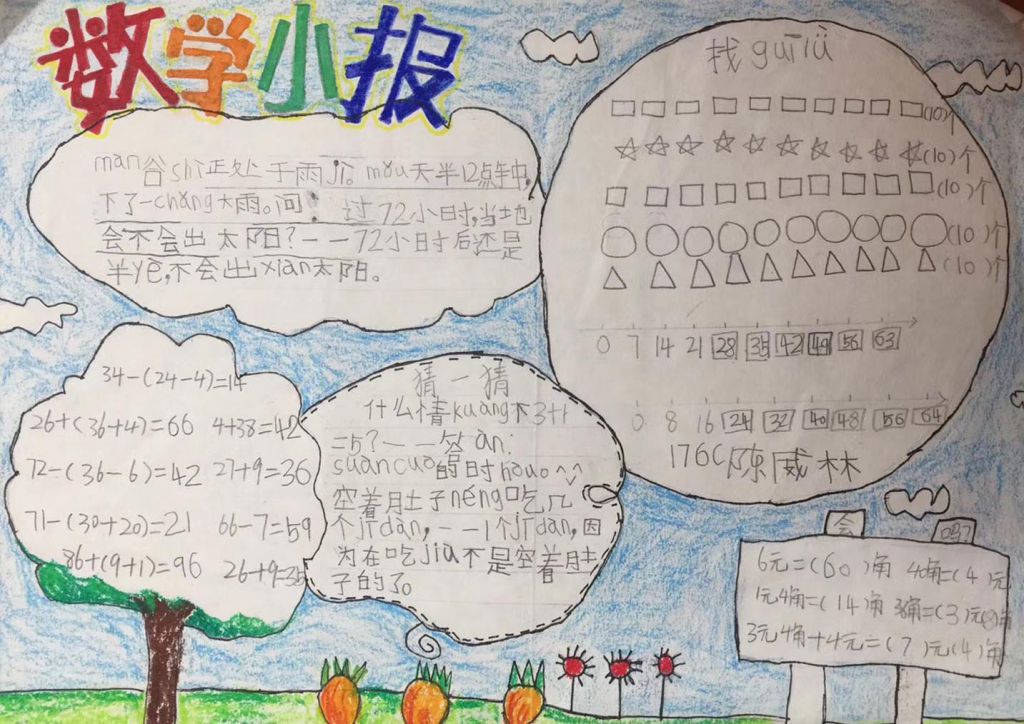 数学小报
man谷shì正处于雨jì。mǒu天半12点钟,
下了一chǎng大雨。问:过72小时,当地
会不会出太阳?——72小时后还是
半yè,不会出xiàn太阳。
找guīlǜ
(10)个
(10)个
(10)个
(10)个
(10)个
0 7 14 21 28 35 42 49 56 63
0 8 16 24 32 40 48 56 64
176C陈威林
34-(24-4)=14
26+(36+4)=66 4+38=42
72-(36-6)=42 27+9=36
71-(30+20)=21 66-7=59
86+(9+1)=96 26+9=35
猜一猜
什么情kuàng下3+1
=5?——答àn:
suàncuò的时hòu。
空着肚子néng吃几
个jīdàn,——1个jīdàn,因
为在吃jiù不是空着肚
子的了。
会吗?
6元=(60)角 40角=(4)元
1元4角=(14)角 38角=(3)元(8)角
3元4角+4元=(7)元(4)角